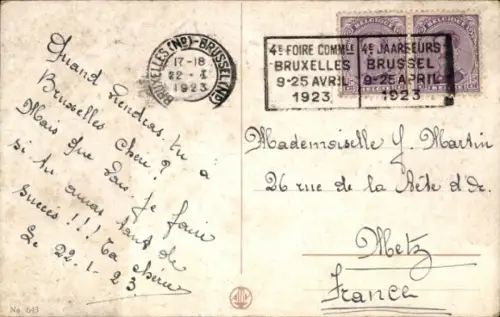 Quand viendras tu à
Bruxelles chérie ?
Mais que vais je faire
si tu auras tant de
succès !!! Ta chérie
Le 22.1-23
BRUXELLES (No)-BRUSSEL (N)
17-18
22 - I
1923
4e FOIRE COMMle
BRUXELLES
9-25 AVRIL
1923
4e JAARBEURS
BRUSSEL
9-25 APRIL
1923
BELGIQUE
BELGIQUE
Mademoiselle Y. Martin
26 rue de la Tête d'Or.
Metz
France
No. 643